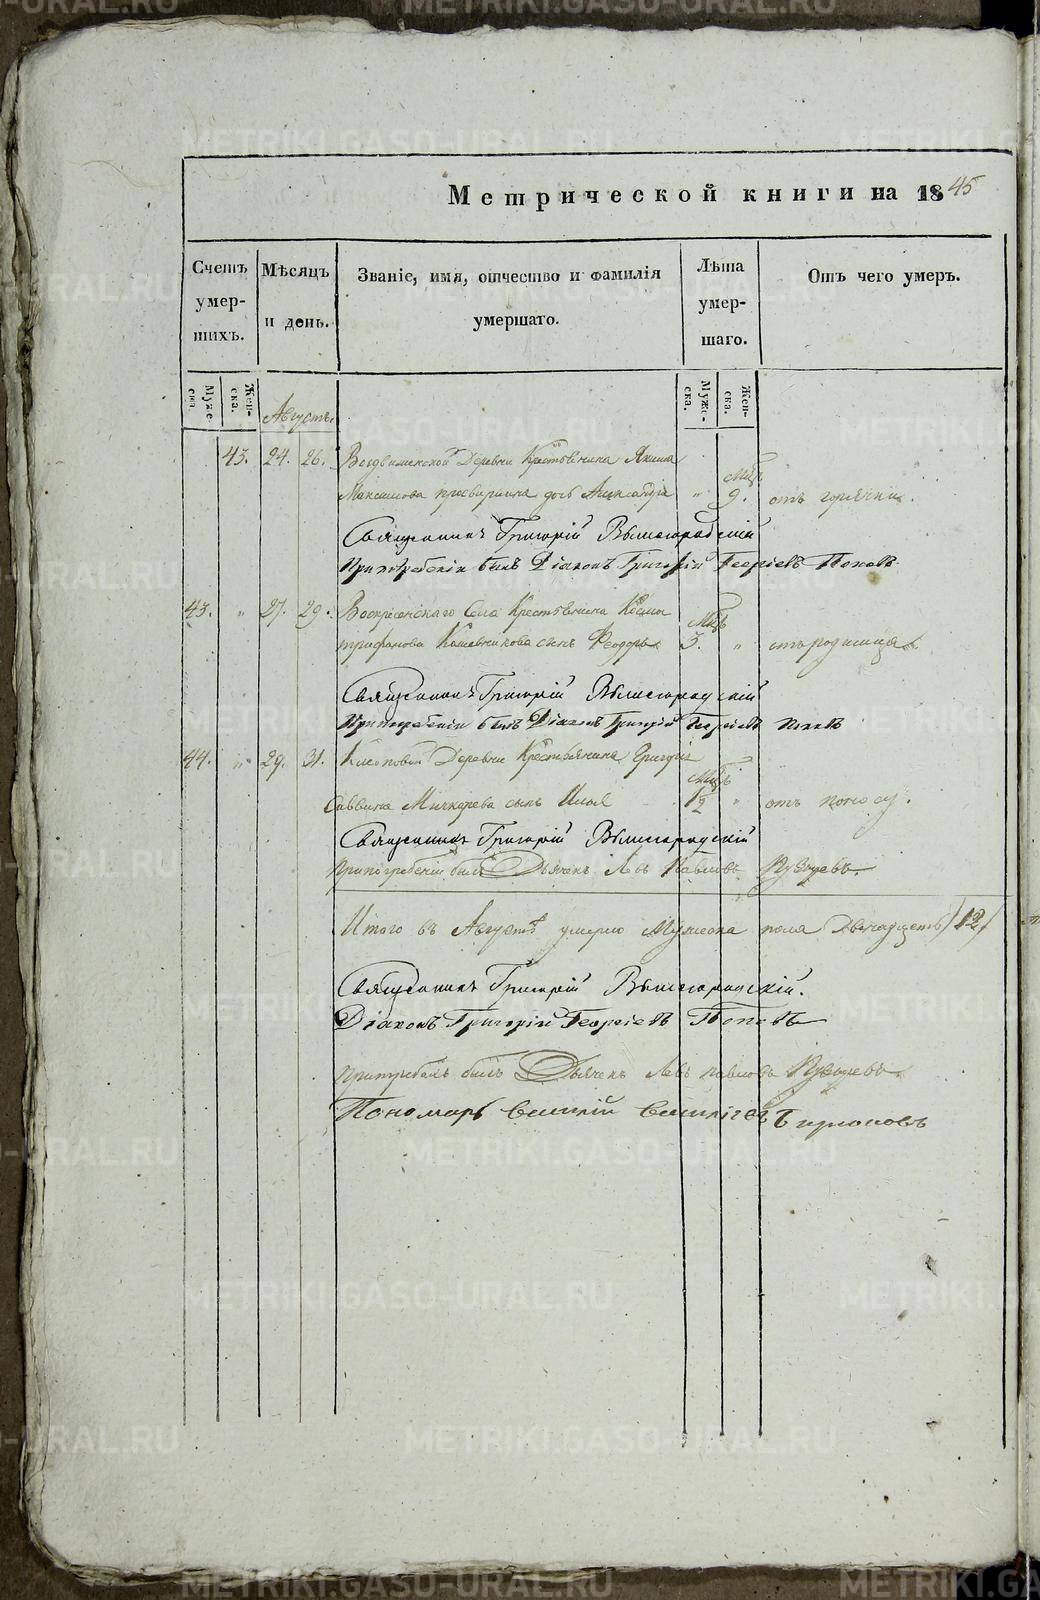 Метрической книги на 1845
Счетъ умер-шихъ.
Мѣсяцъ и день.
Званіе, имя, отчество и фамилія умершаго.
Лѣта умер-шаго.
Отъ чего умеръ.
Муже-ска.
Жен-ска.
Муже-ска.
Жен-ска.
Августъ.
43. 24. 26. Воздвиженской Деревни Крестьянина Якима
Максимова просвирнина дочь Александра " Мцъ 9. отъ горячки.
Священникъ Григорій Вышегородскій
При погребеніи былъ Діаконъ Григорій Георгіевъ Поповъ
43. " 27. 29. Воскресенскаго Села Крестьянина Космы
трифанова Кожевникова сынъ Феодоръ Мцъ 3. " отъ родимца
Священникъ Григорій Вышегородскій
При погребеніи былъ Діаконъ Григорій Георгіевъ Поповъ
44. " 29. 31. Деревни Крестьянина Григорія
Саввина сынъ Илья Мцъ 1½ " отъ поносу.
Священникъ Григорій Вышегородскій
При погребеніи былъ Дьячекъ Левъ Павловъ
Итого въ Августѣ умерло Мужеска пола Двенадцать /12/
Священникъ Григорій Вышегородскій.
Діаконъ Григорій Георгіевъ Поповъ
былъ Дьячекъ Левъ Павловъ
Пономарь Василій Василіевъ
METRIKI.GASO-URAL.RU